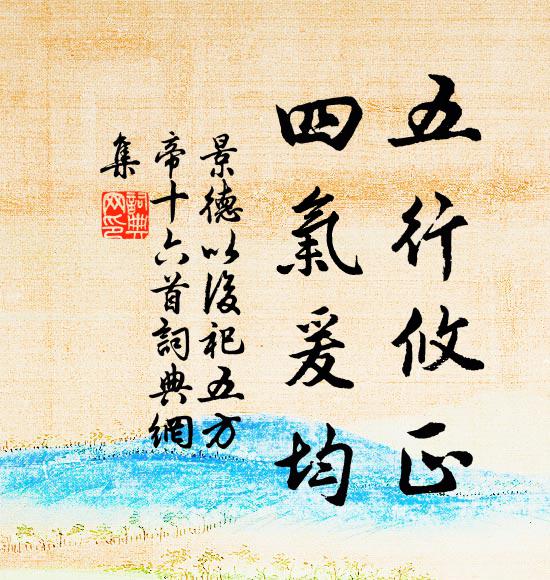 五行攸正
四氣爰均
景德以後祀五方
帝十六首詞典網
集
詞典
网印